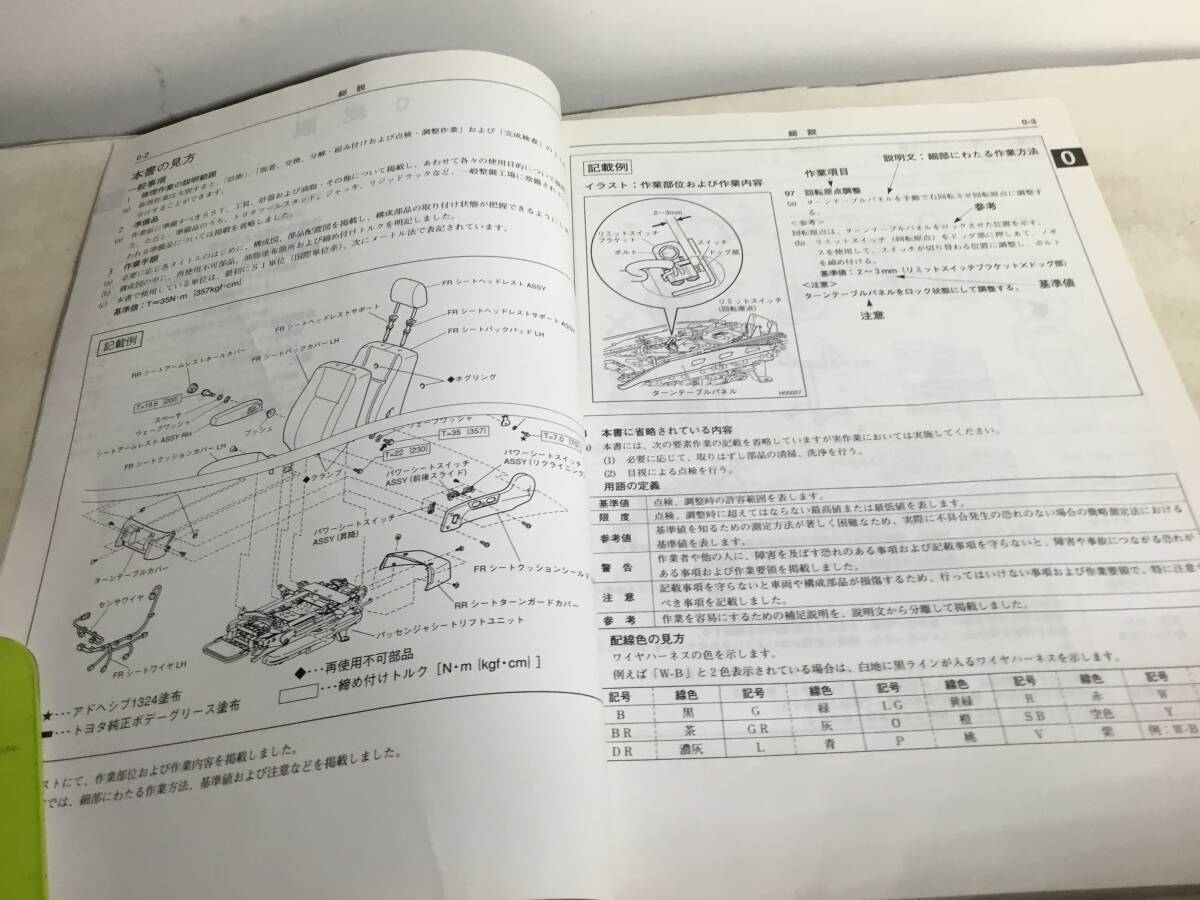 0-2
総 説
本書の見方
一般事項
1 修理作業の説明範囲
(a) 修理作業は大別すると、「診断」、「脱着、交換、分解・組み付けおよび点検・調整作業」および「完成検査」の
分けることができます。
2 準備品
(a) 作業前に準備すべきSST、工具、計器および油脂・その他について掲載し、あわせて各々の使用目的について
た。ただし、準備品のうち、トヨタツールスタンド、ジャッキ、リジッドラックなど、一般整備工場に常備され
われる準備品については掲載を省略しました。
3 作業手順
(a) 必要に応じ各タイトルのはじめに、構成図、部品配置図を掲載し、構成部品の取り付け状態が把握できるようにし
(b) 構成図の中に、再使用不可部品、油脂塗布箇所および締め付けトルクを明記しました。
(c) 本書で使用している単位は、最初にSI単位(国際単位系)、次にメートル法で表記されています。
基準値:T=35N・m {357kgf・cm}
記載例
FR シートヘッドレスト ASSY
FR シートヘッドレストサポート
FR シートヘッドレストサポート ASSY
FR シートバックパッド LH
FR シートバックカバー LH
RR シートアームレストホールカバー
◆ホグリング
T=19.6 {200}
スペーサ
ウェーブワッシャ
シートアームレスト ASSY RH
ブッシュ
FR シートクッションカバー LH
ウェーブワッシャ
T=35 {357}
T=7.0
T=22 {230}
◆クランプ
パワーシートスイッチ
ASSY (前後スライド)
パワーシートスイッチ
ASSY (リクライニング)
パワーシートスイッチ
ASSY (昇降)
ターンテーブルカバー
FR シートクッションシールド
RR シートターンガードカバー
センサワイヤ
パッセンジャシートリフトユニット
FR シートワイヤ LH
◆･･･再使用不可部品
･･･締め付けトルク [N・m {kgf・cm} ]
★･･･アドヘシブ1324塗布
･･･トヨタ純正ボデーグリース塗布
ストにて、作業部位および作業内容を掲載しました。
では、細部にわたる作業方法、基準値および注意などを掲載しました。
総 説
0-3
0
記載例
説明文:細部にわたる作業方法
イラスト:作業部位および作業内容
作業項目
2～3mm
リミットスイッチ
ブラケット
ボルト
スイッチ
ドッグ部
リミットスイッチ
(回転原点)
ターンテーブルパネル
H00057
97 回転原点調整
(a) ターンテーブルパネルを手動で右回転させ回転原点に調整す
る。
参考
<参考>
回転原点は、ターンテーブルパネルをロックさせた位置を示す。
(b) リミットスイッチ(回転原点)をドッグ部に押しあて、ノギ
スを使用して、スイッチが切り替わる位置に調整し、ボルト
を締め付ける。
基準値:2～3mm(リミットスイッチブラケット×ドッグ部)
<注意>
ターンテーブルパネルをロック状態にして調整する。
基準値
注意
本書に省略されている内容
本書には、次の要素作業の記載を省略していますが実作業においては実施してください。
(1) 必要に応じて、取りはずし部品の清掃、洗浄を行う。
(2) 目視による点検を行う。
用語の定義
基準値 点検、調整時の許容範囲を表します。
限 度 点検、調整時に超えてはならない最高値または最低値を表します。
参考値 基準値を知るための測定方法が著しく困難なため、実際に不具合発生の恐れのない場合の簡略測定法における
基準値を表します。
警 告 作業者や他の人に、障害を及ぼす恐れのある事項および記載事項を守らないと、障害や事故につながる恐れが
ある事項および作業要領を掲載しました。
注 意 記載事項を守らないと車両や構成部品が損傷するため、行ってはいけない事項および作業要領で、特に注意す
べき事項を記載しました。
参 考 作業を容易にするための補足説明を、説明文から分離して掲載しました。
配線色の見方
ワイヤハーネスの色を示します。
例えば「W-B」と2色表示されている場合は、白地に黒ラインが入るワイヤハーネスを示します。
記号 線色 記号 線色 記号 線色 記号 線色 記号
B 黒 G 緑 LG 黄緑 R 赤 W
BR 茶 GR 灰 O 橙 SB 空色 Y
DR 濃灰 L 青 P 桃 V 紫 例:W-B